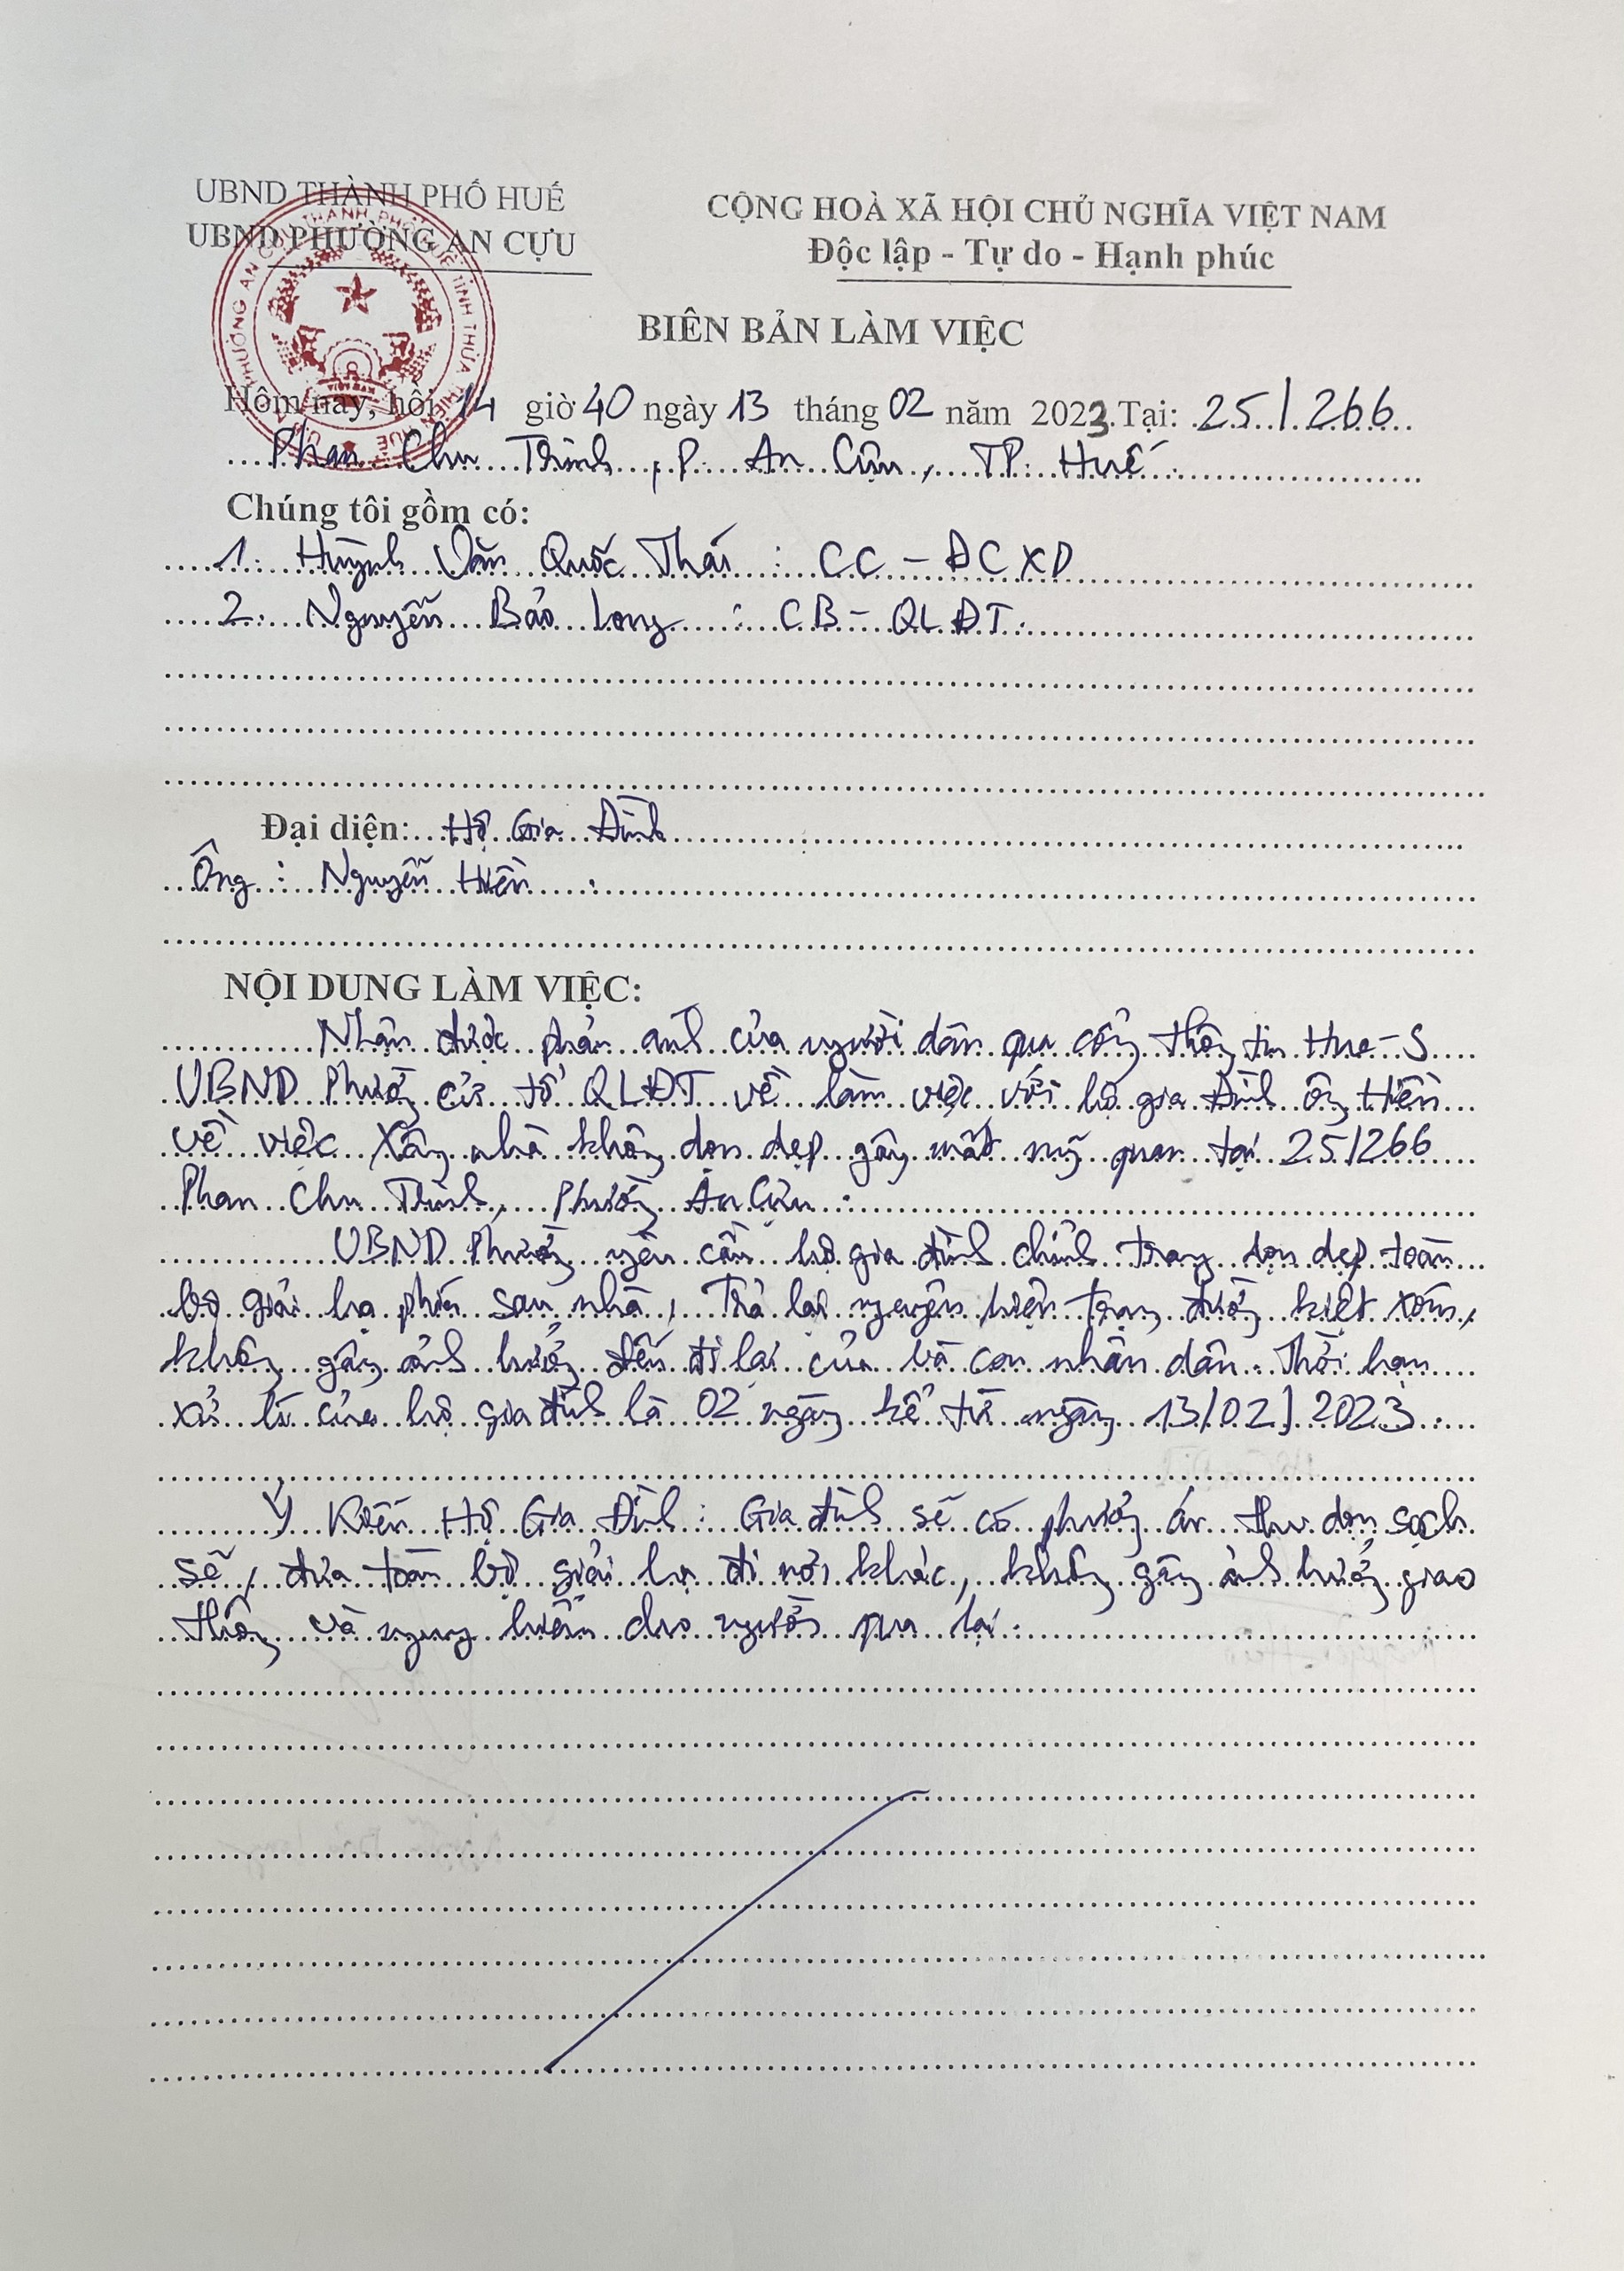 UBND THÀNH PHỐ HUẾ
UBND PHƯỜNG AN CỰU
CỘNG HOÀ XÃ HỘI CHỦ NGHĨA VIỆT NAM
Độc lập - Tự do - Hạnh phúc
BIÊN BẢN LÀM VIỆC
Hôm nay, hồi 14 giờ 40 ngày 13 tháng 02 năm 2023. Tại: 25/266
Phan Chu Trinh, P. An Cựu, TP. Huế.
Chúng tôi gồm có:
1. Huỳnh Văn Quốc Thái : CC - ĐCXD
2. Nguyễn Bảo Long : CB - QLĐT.
Đại diện: Hộ Gia Đình
Ông : Nguyễn Hiền .
NỘI DUNG LÀM VIỆC:
Nhận được phản ánh của người dân qua cổng thông tin Hue-S
UBND Phường cử tổ QLĐT về làm việc với hộ gia Đình ông Hiền
về việc Xây nhà không dọn dẹp gây mất mỹ quan tại 25/266
Phan Chu Trinh, Phường An Cựu .
UBND Phường yêu cầu hộ gia đình chỉnh trang dọn dẹp toàn
bộ giải hạ phía sau nhà, Trả lại nguyên hiện trạng đường kiệt xóm,
không gây ảnh hưởng đến đi lại của bà con nhân dân. Thời hạn
xử lí của hộ gia đình là 02 ngày kể từ ngày 13/02/2023.
Ý Kiến Hộ Gia Đình : Gia đình sẽ có phương án thu dọn sạch
sẽ, đưa toàn bộ giải hạ đi nơi khác, không gây ảnh hưởng giao
thông và nguy hiểm cho người qua lại.